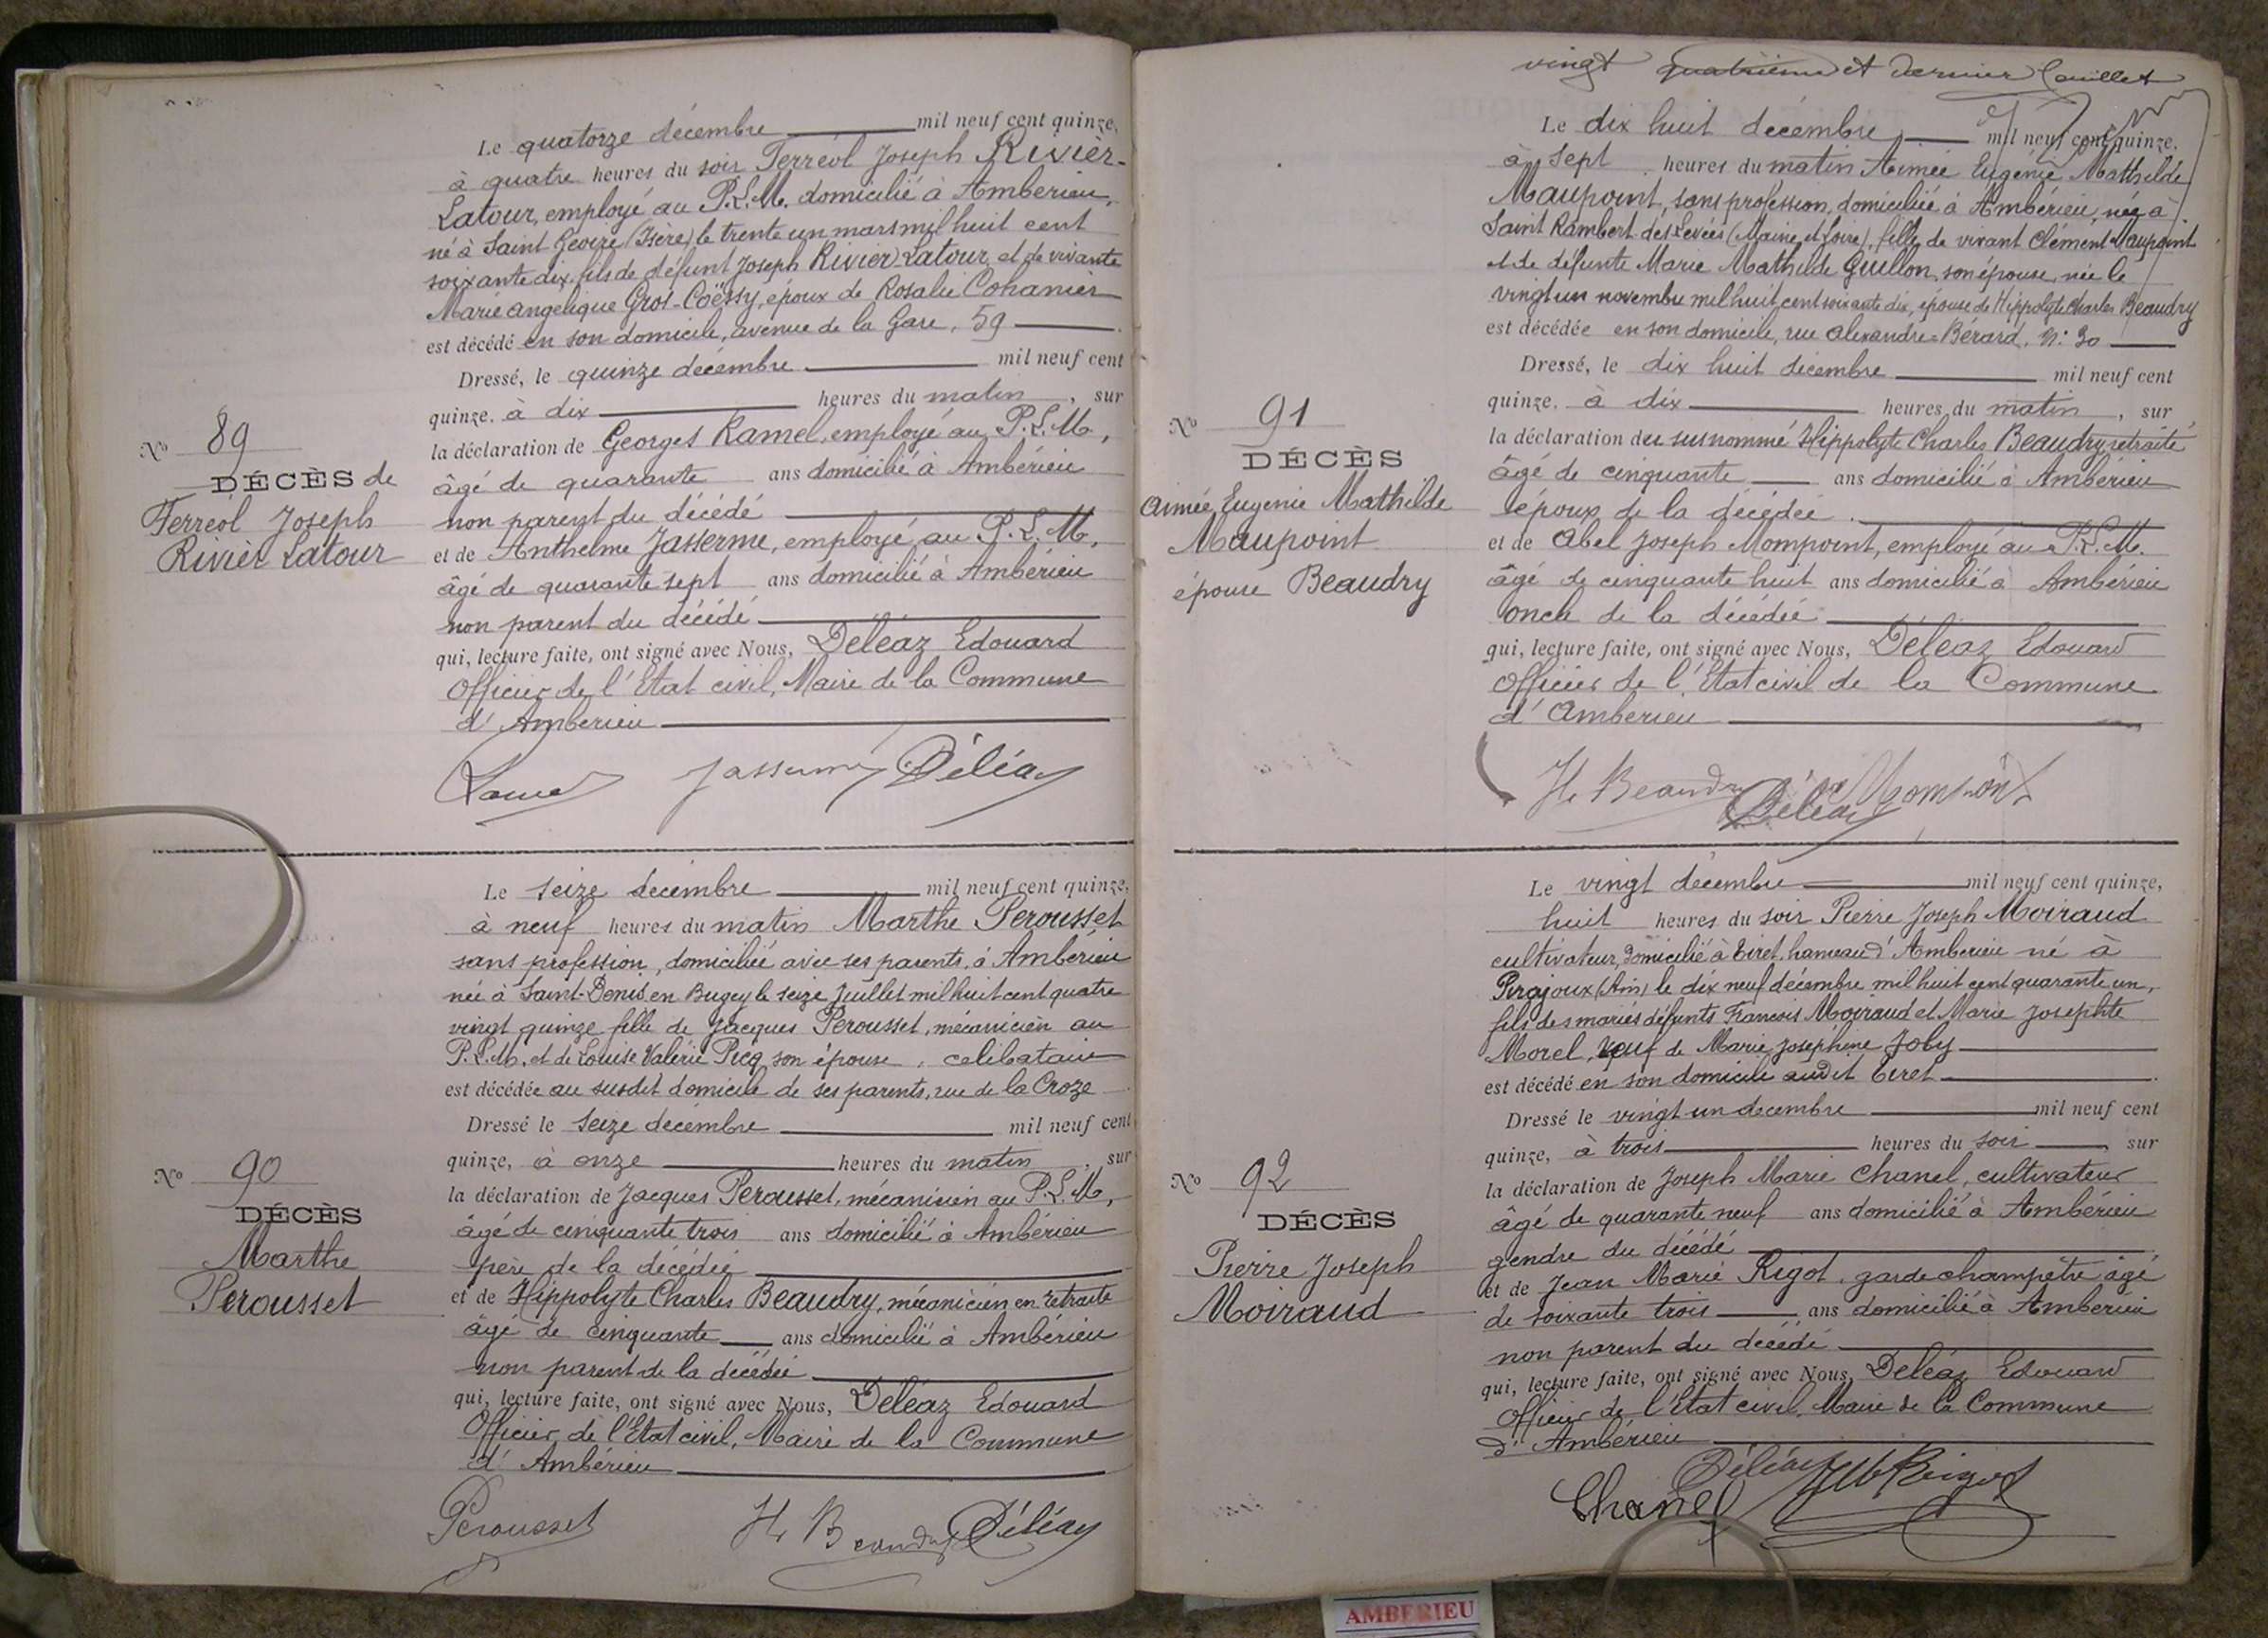 Le quatorze décembre mil neuf cent quinze,
à quatre heures du soir Ferréol Joseph Rivier-
Latour, employé au P.L.M. domicilié à Ambérieu,
né à Saint Geoire (Isère) le trente un mars mil huit cent
soixante dix, fils de défunt Joseph Rivier Latour et de vivante
Marie Angelique Gros-Coëssy, époux de Rosalie Cohanier
est décédé en son domicile, avenue de la Gare, 59
Dressé, le quinze décembre mil neuf cent
quinze, à dix heures du matin, sur
la déclaration de Georges Ramel, employé au P.L.M,
âgé de quarante ans domicilié à Ambérieu
non parent du décédé
et de Anthelme Jasserme, employé au P.L.M,
âgé de quarante sept ans domicilié à Ambérieu
non parent du décédé
qui, lecture faite, ont signé avec Nous, Déléaz Edouard
Officier de l'Etat civil, Maire de la Commune
d'Ambérieu
Jasserme Déléaz
No 89
DÉCÈS de
Ferréol Joseph
Rivièr Latour
Le seize décembre mil neuf cent quinze,
à neuf heures du matin Marthe Perousset
sans profession, domiciliée avec ses parents, à Ambérieu
née à Saint-Denis en Bugey le seize Juillet mil huit cent quatre
vingt quinze fille de Jacques Perousset, mécanicien au
P.L.M. et de Louise Valérie Picq son épouse, celibataire
est décédée au susdit domicile de ses parents, rue de la Croze
Dressé le seize décembre mil neuf cent
quinze, à onze heures du matin, sur
la déclaration de Jacques Perousset, mécanicien au P.L.M,
âgé de cinquante trois ans domicilié à Ambérieu
père de la décédée
et de Hippolyte Charles Beaudry, mécanicien en retraite
âgé de cinquante ans domicilié à Ambérieu
non parent de la décédée
qui, lecture faite, ont signé avec Nous, Déléaz Edouard
Officier de l'Etat civil, Maire de la Commune
d'Ambérieu
Perousset H. Beaudry Déléaz
No 90
DÉCÈS
Marthe
Perousset
vingt quatrième et dernier feuillet
Le dix huit décembre mil neuf cent quinze.
à sept heures du matin Aimée Eugénie Mathilde
Maupoint, sans profession, domiciliée à Ambérieu, née à
Saint Rambert des Levées (Maine et Loire), fille de vivant Clément Maupoint
et de défunte Marie Mathilde Guillon, son épouse, née le
vingt un novembre mil huit cent soixante dix, épouse de Hippolyte Charles Beaudry
est décédée en son domicile, rue Alexandre-Bérard, N: 30
Dressé, le dix huit décembre mil neuf cent
quinze, à dix heures du matin, sur
la déclaration du susnommé Hippolyte Charles Beaudry, retraité
âgé de cinquante ans domicilié à Ambérieu
époux de la décédée
et de Abel Joseph Mompoint, employé au P.L.M.
âgé de cinquante huit ans domicilié à Ambérieu
oncle de la décédée
qui, lecture faite, ont signé avec Nous, Déléaz Edouard
Officier de l'Etat civil de la Commune
d'Ambérieu
H. Beaudry Déléaz Mompoint
No 91
DÉCÈS
Aimée Eugenie Mathilde
Maupoint
épouse Beaudry
Le vingt décembre mil neuf cent quinze,
huit heures du soir Pierre Joseph Moiraud
cultivateur, domicilié à Tiret, hameau d'Ambérieu né à
Pirajoux (Ain) le dix neuf décembre mil huit cent quarante un,
fils des mariés défunts François Moiraud et Marie Josephte
Morel, veuf de Marie Josephine Joly
est décédé en son domicile audit Tiret
Dressé le vingt un décembre mil neuf cent
quinze, à trois heures du soir, sur
la déclaration de Joseph Marie Chanel, cultivateur
âgé de quarante neuf ans domicilié à Ambérieu
gendre du décédé
et de Jean Marie Rigot, garde champêtre âgé
de soixante trois ans domicilié à Ambérieu
non parent du décédé
qui, lecture faite, ont signé avec Nous, Déléaz Edouard
Officier de l'Etat civil, Maire de la Commune
d'Ambérieu
Chanel Déléaz JM Rigot
No 92
DÉCÈS
Pierre Joseph
Moiraud
AMBERIEU